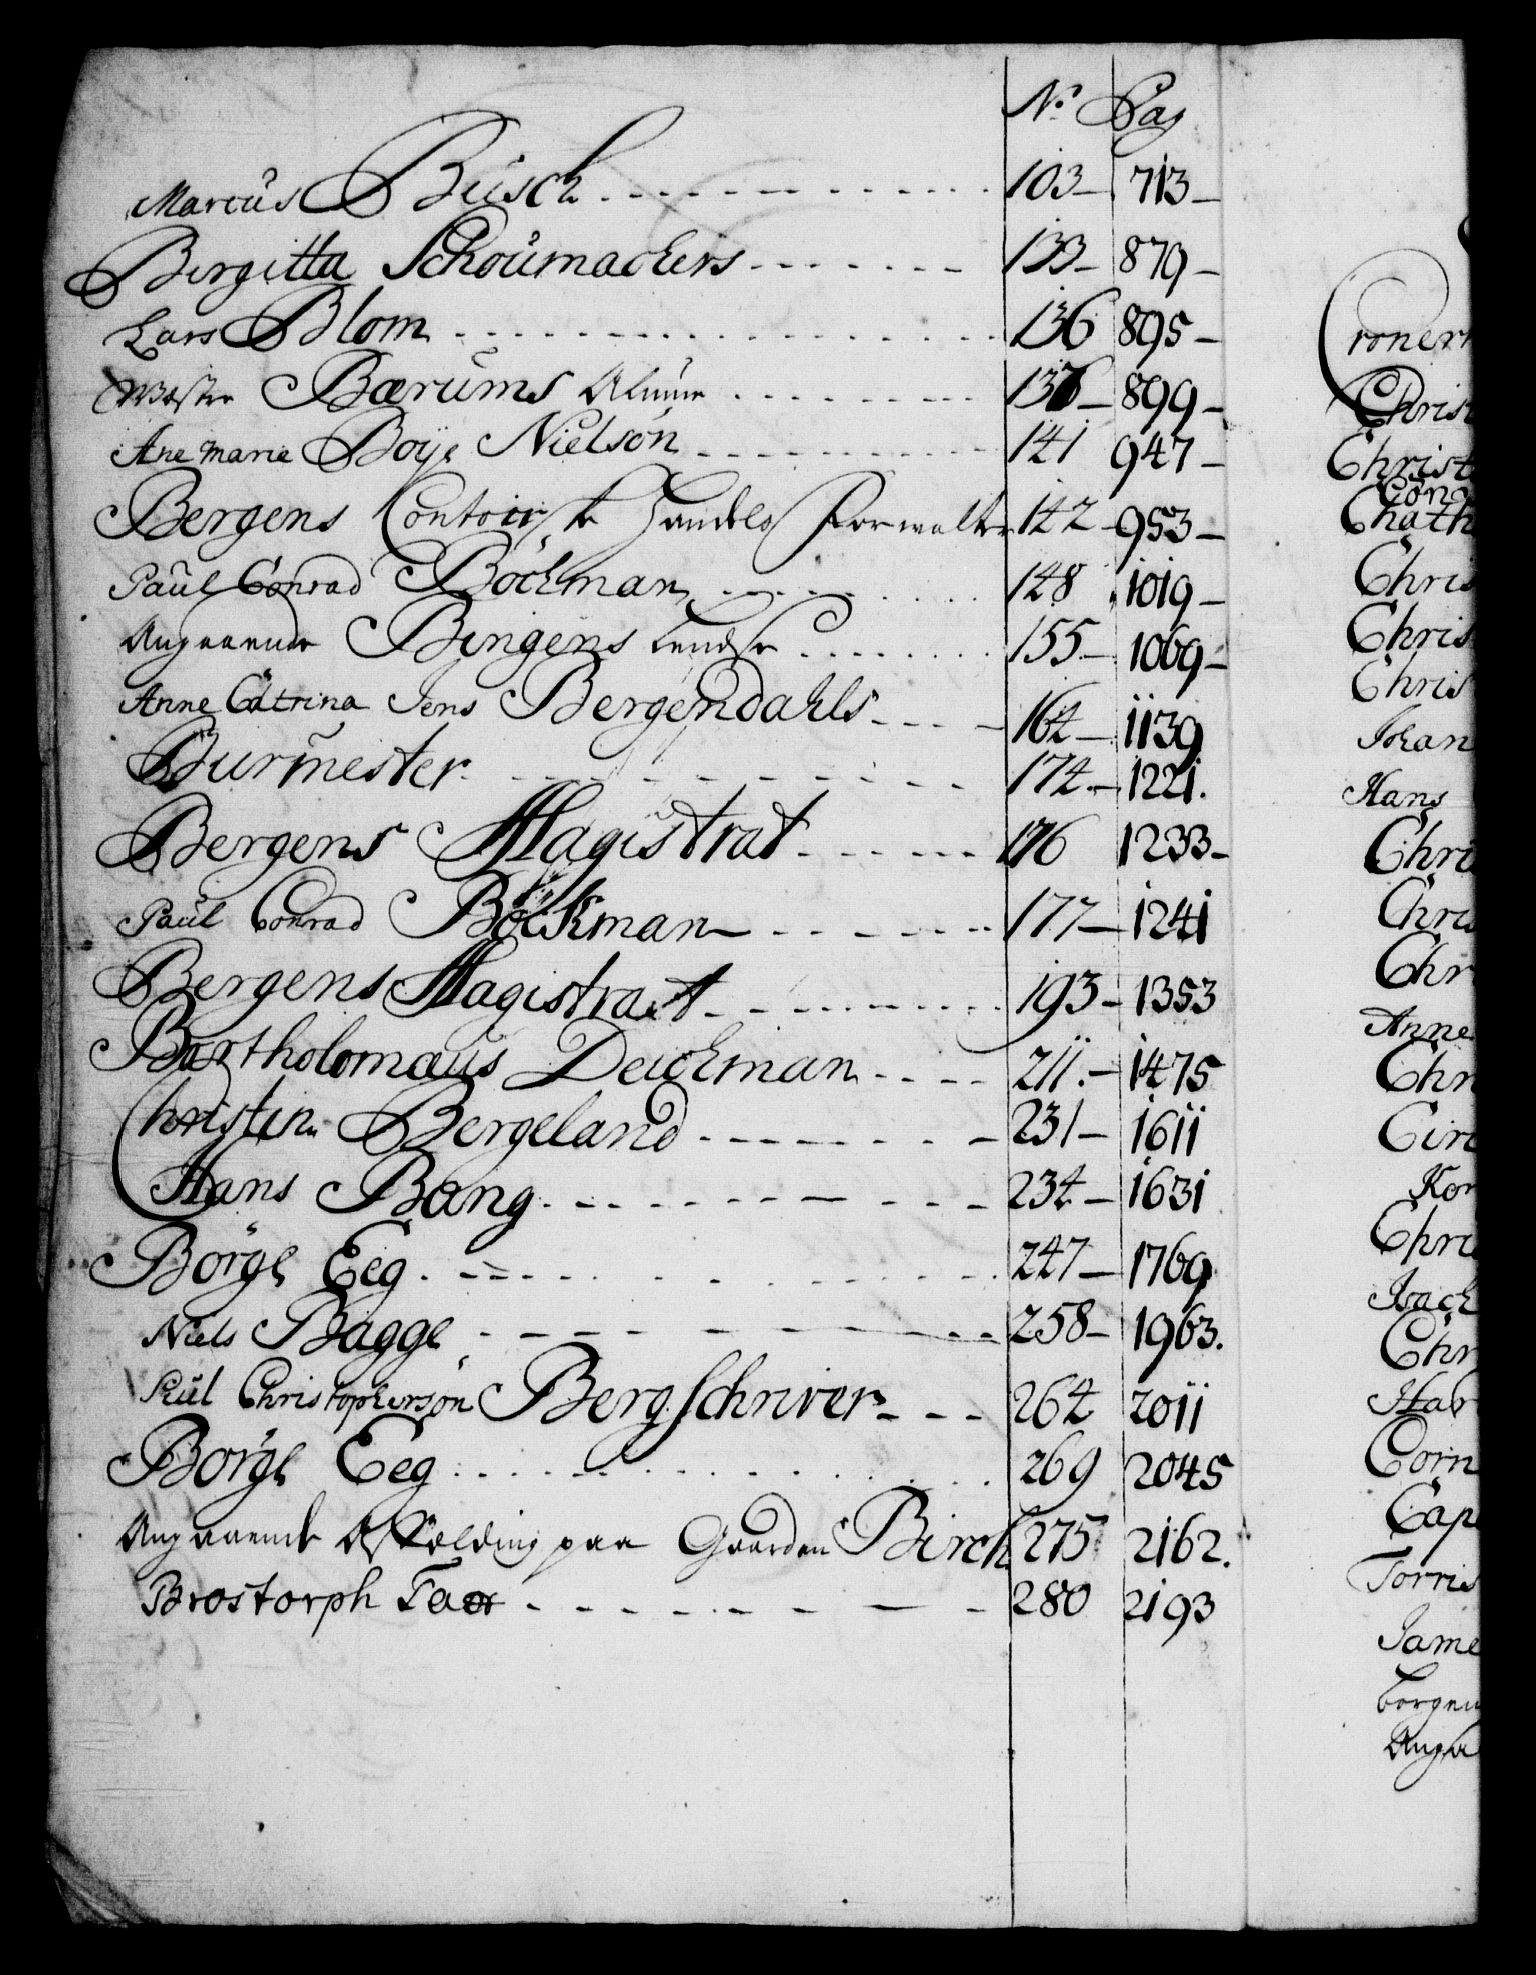 No Pag
Marcus Busch 103 713
Birgitta Schoumachers 133 879
Lars Blom 136 895
Wester Bærums Almue 136 899
Ane Marie Boÿe Nielsön 141 947
Bergens Contoirske Handels Forwalter 142 953
Paul Conrad Böckman 148 1019
Angaaende Bingens Lendse 155 1069
Anne Catrina Jens Bergendahls 164 1139
Burmester 174 1221.
Bergens Magistrat 176 1233
Paul Conrad Böckman 177 1241
Bergens Magistrat 193 1353
Bartholomæus Deichman 211. 1475
Christin Bergeland 231 1611
Hans Bang 234 1631
Börge Eeg 247 1769
Niels Bagge 258 1963.
Poul Christophersön Bergschriver 264 2011
Börge Eeg 269 2045
Angaaende paa Gaarden Birch 275 2162.
Brostorph 280 2193
Croner
Chris
Christ
Cong
Cathr
Chris
Chris
Chris
Johan
Hans
Chri
Chris
Chr
Anne
Chr
Circ
Kor
Chri
Isach
Chr
Har
Corn
Cap
Torris
Jame
borgen
Anga